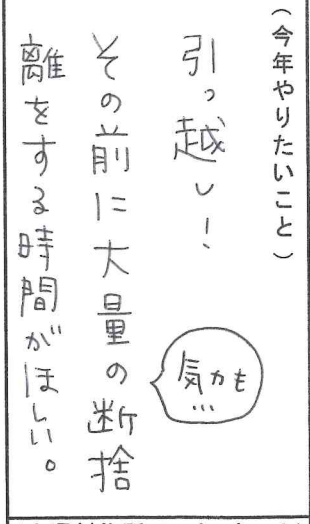 （今年やりたいこと）
引っ越し！
その前に大量の断捨
離をする時間がほしい。
気力も…